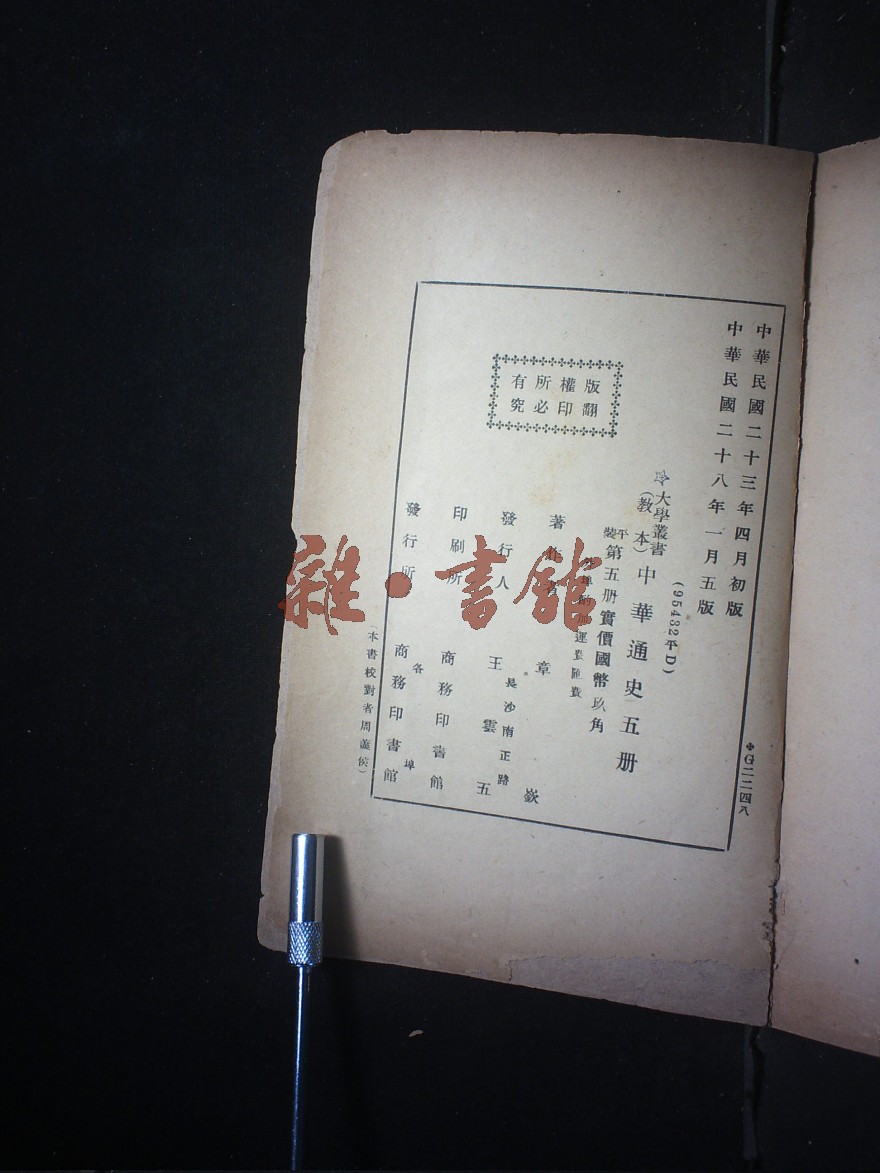 中華民國二十三年四月初版
中華民國二十八年一月五版
✤G二二四八
(95432平D)
大學叢書
(教本)
中華通史五册
平裝
第五册實價國幣玖角
外埠酌加運費匯費
著作者 章嶔
發行人 王雲五
長沙南正路
印刷所 商務印書館
發行所 商務印書館
各埠
版權所有
翻印必究
(本書校對者周 侯)
雜·書館